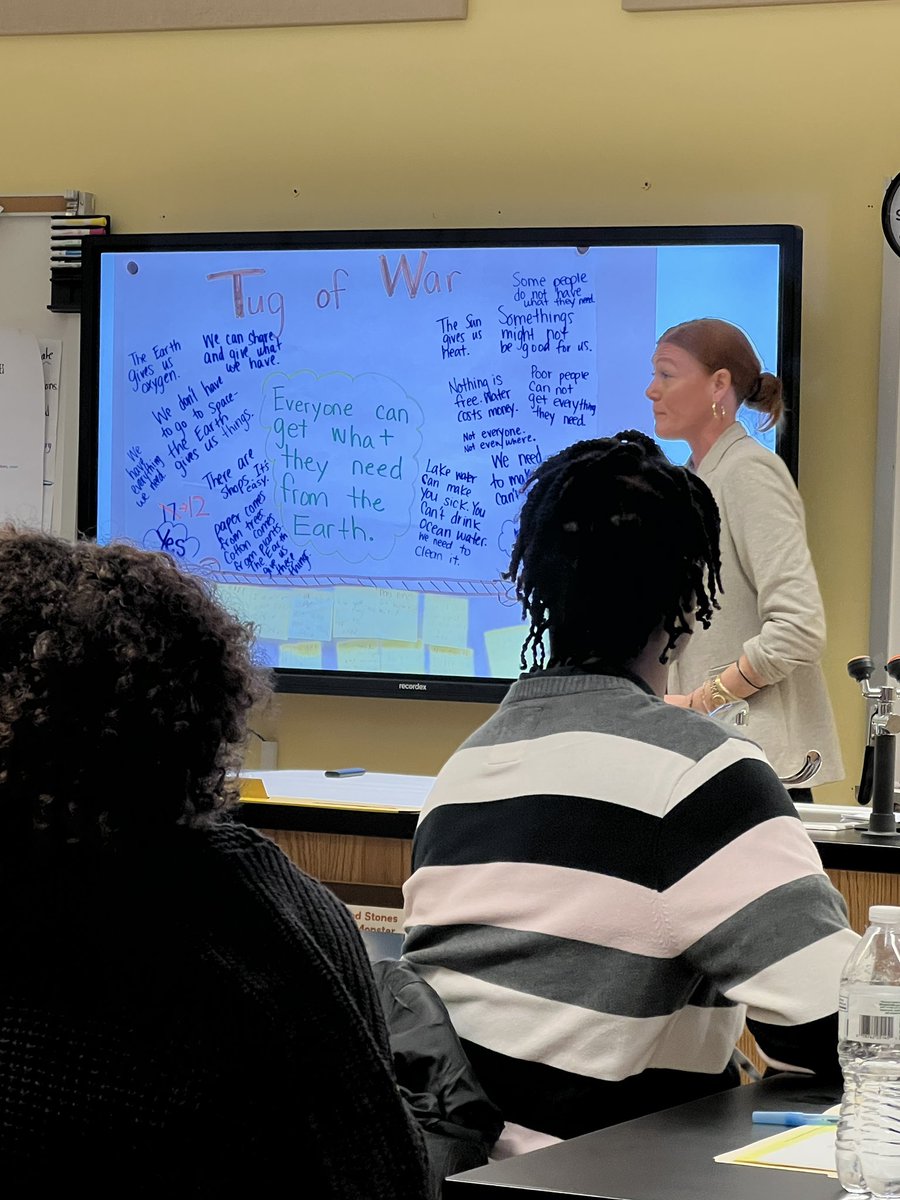 Tug of War
The Earth
gives us
oxygen.
We can share
and give what
we have.
We don't have
to go to space-
the Earth
gives us things.
We
have
everything
we need.
There are
shops. It's
easy.
17→12
Yes
paper comes
from trees.
Cotton comes
from plants.
The Earth
give us
these
things
Everyone can
get what
they need
from the
Earth.
The Sun
gives us
Heat.
Some people
do not have
what they need.
Somethings
might not
be good for us.
Nothing is
free. Water
costs money.
Poor people
can not
get everything
they need.
Not everyone.
Not everywhere.
We need
to
can't
Lake water
can make
you sick. You
can't drink
ocean water.
We need to
clean it.
recordex
Stones
Monster